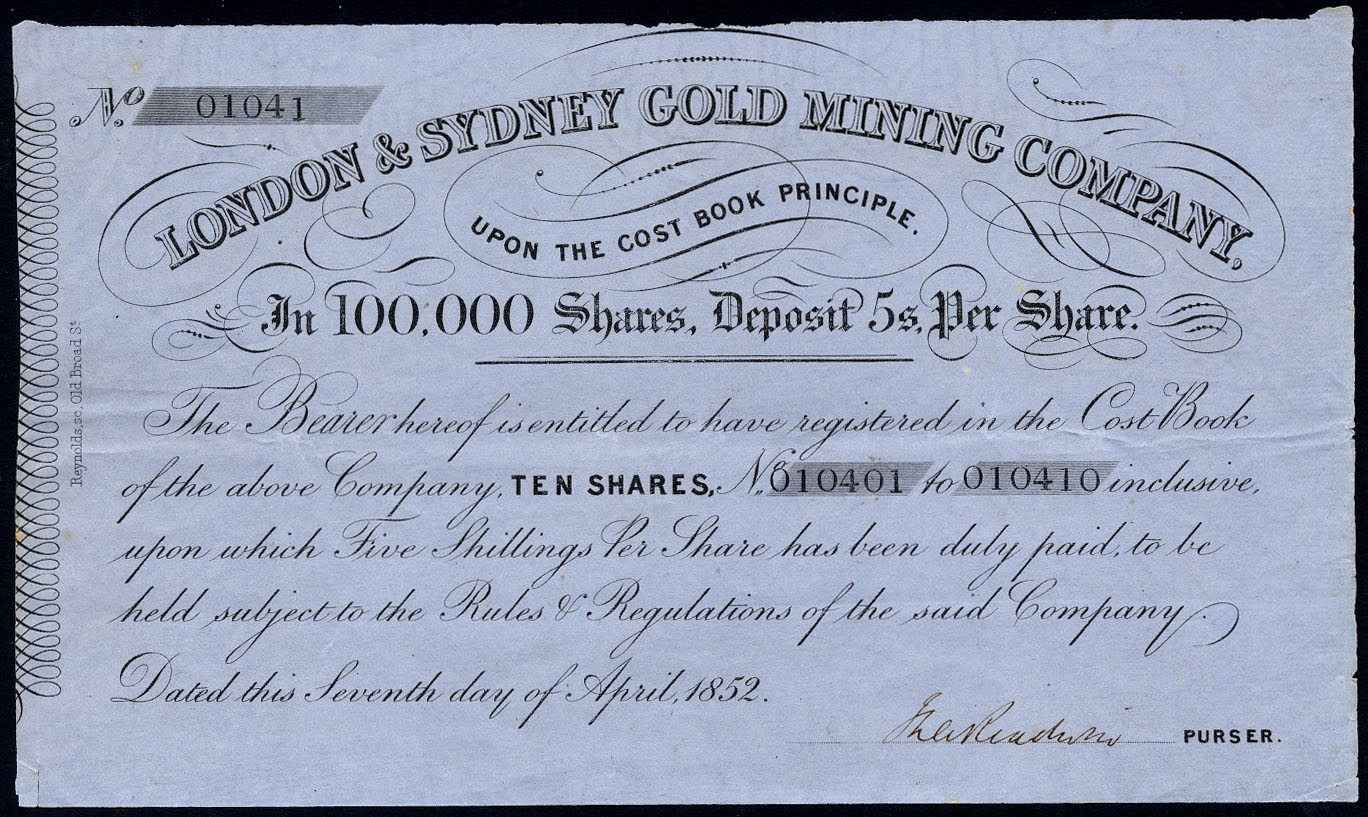 No. 01041
LONDON & SYDNEY GOLD MINING COMPANY,
UPON THE COST BOOK PRINCIPLE.
In 100,000 Shares, Deposit 5s, Per Share.
The Bearer hereof is entitled to have registered in the Cost Book
of the above Company, TEN SHARES, No. 010401 to 010410 inclusive,
upon which Five Shillings Per Share has been duly paid, to be
held subject to the Rules & Regulations of the said Company.
Dated this Seventh day of April, 1852.
PURSER.
Reynolds, sc. Old Broad St.